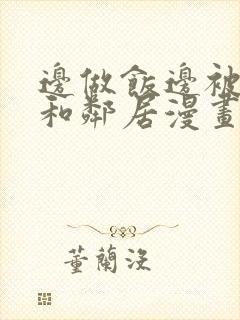 邊做飯邊被
和鄰居漫畫
董蘭沒